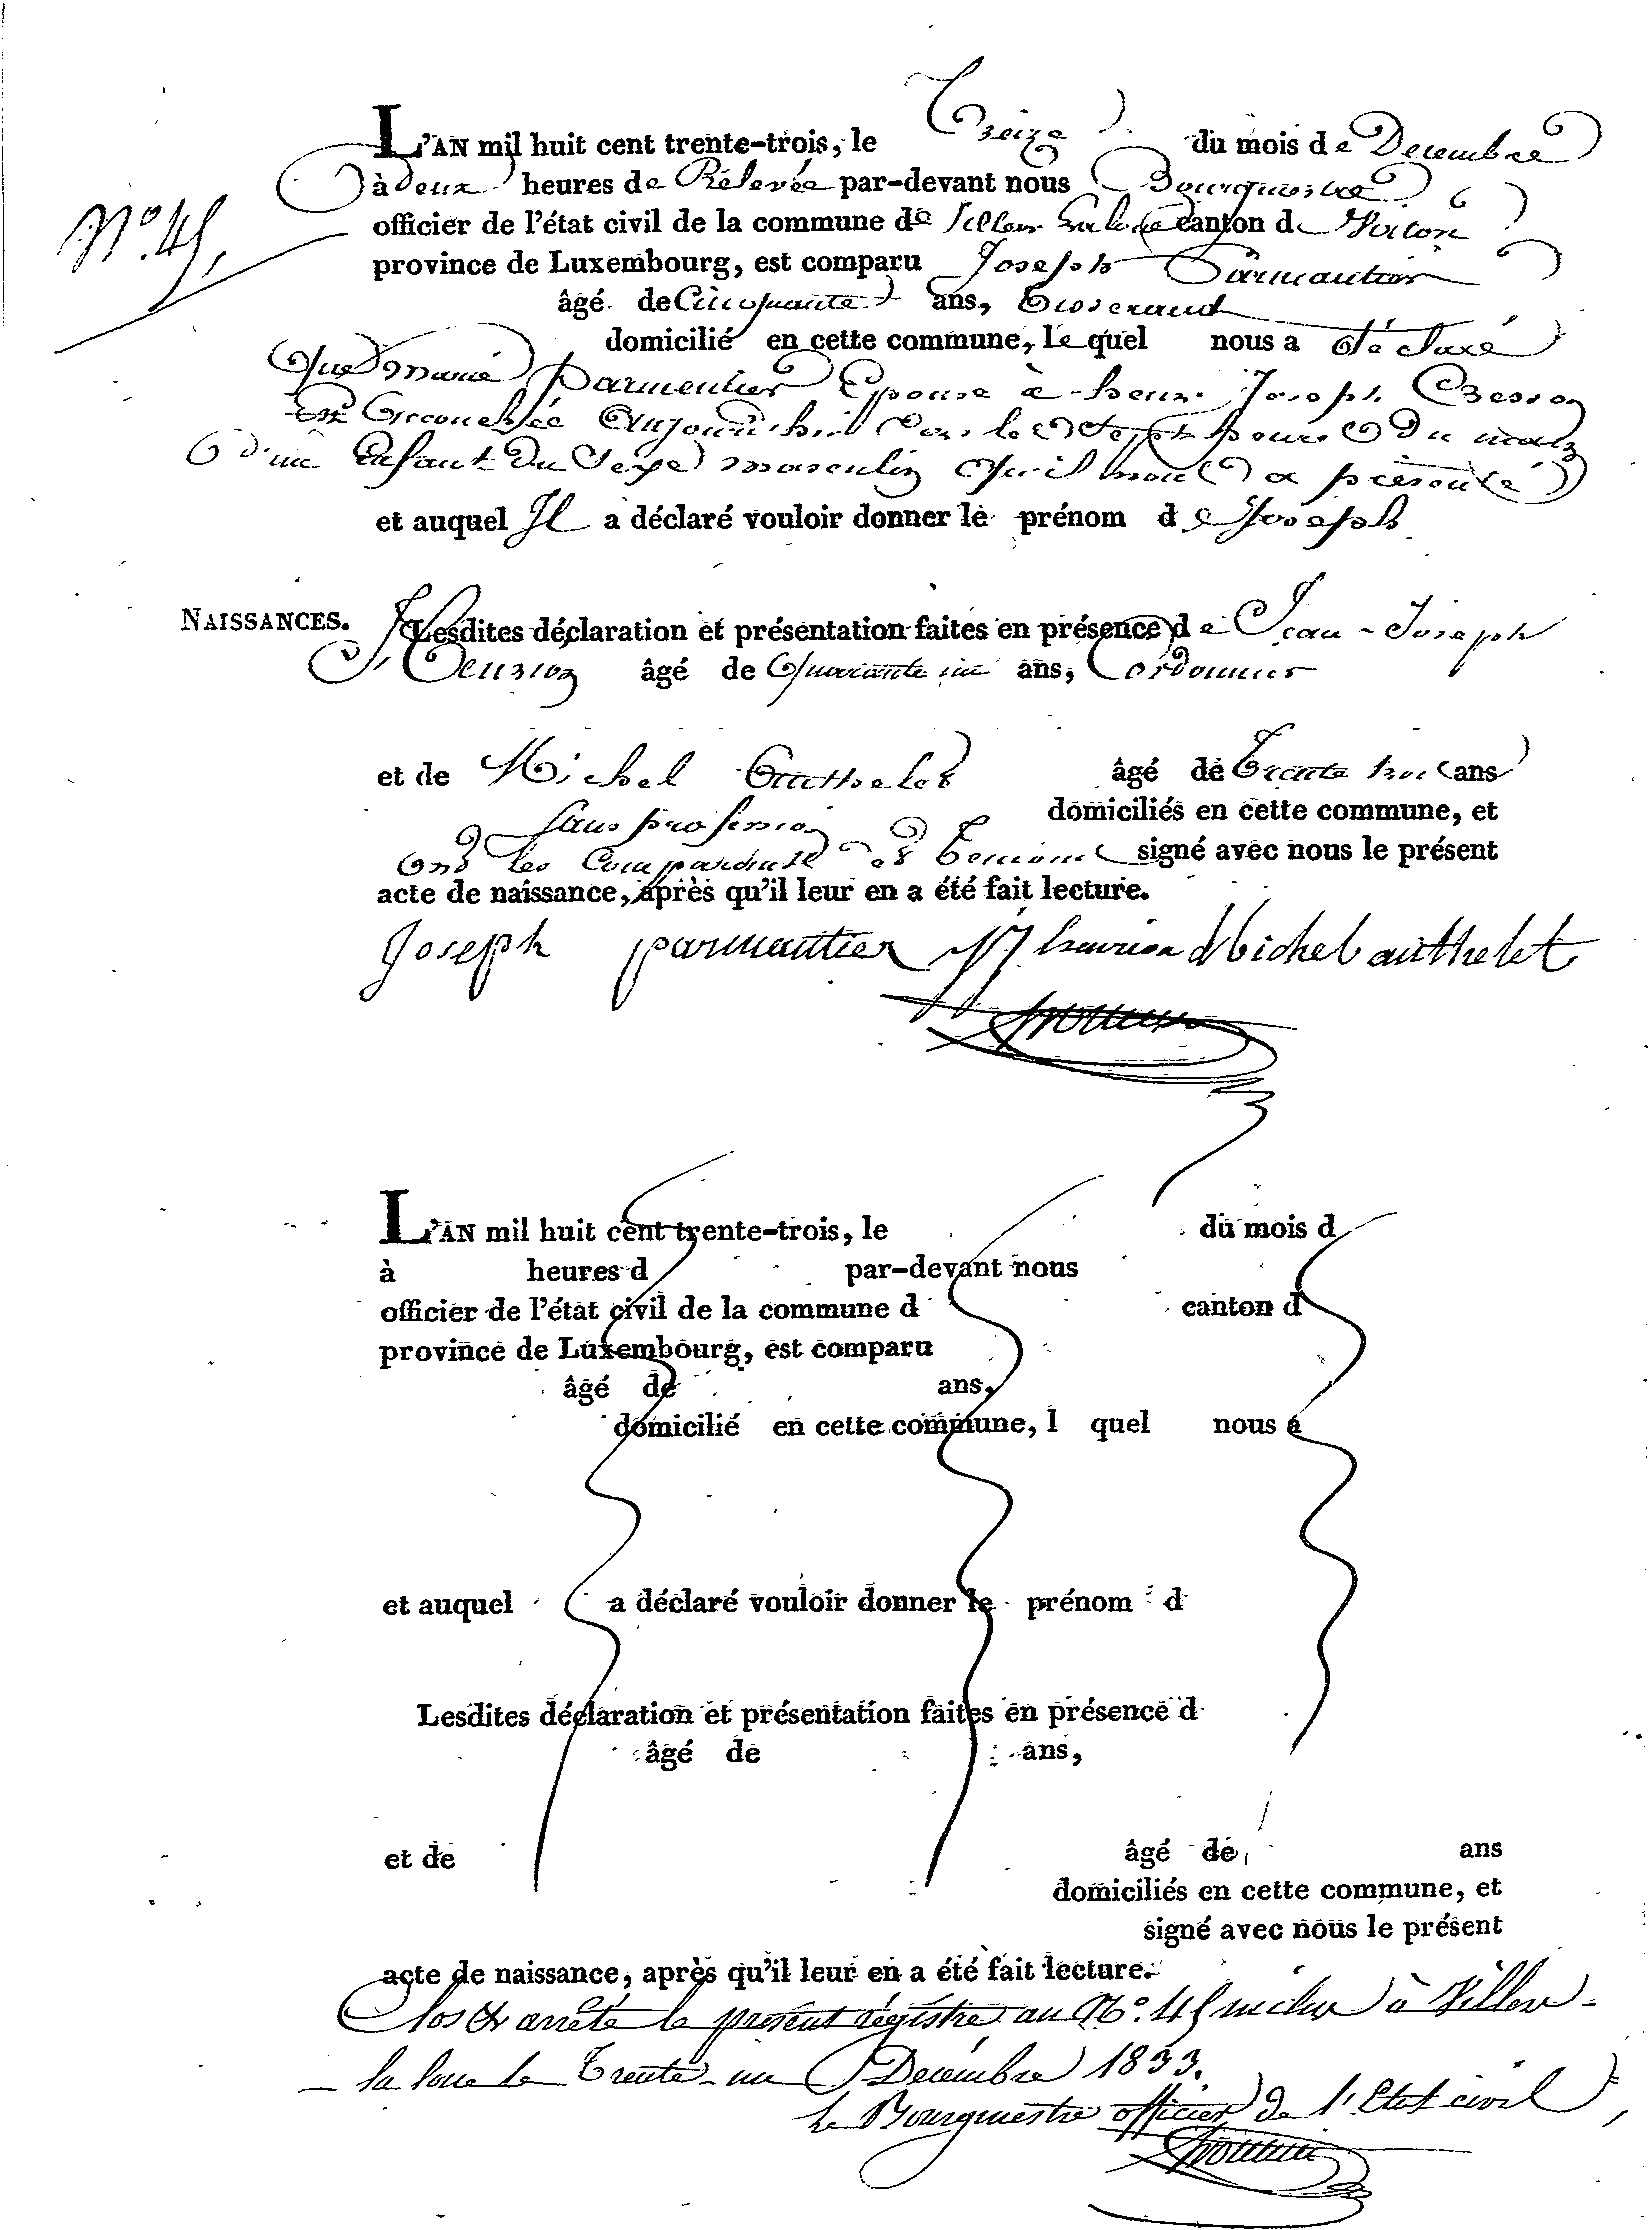 L'AN mil huit cent trente-trois, le Treize du mois de Decembre
à deux heures de Relevée par-devant nous Bourguestre
officier de l'état civil de la commune de canton de Virton
N°. 45,
province de Luxembourg, est comparu Joseph Parmantier
âgé de Cinquante ans, Tisserand
domicilié en cette commune, Lequel nous a déclaré
que marie parmentier Epouse à henri Joseph Cresson
est accouchée aujourd'hui à sept heures du matin
d'un Enfant du Sexe masculin qu'il nous a présenté
et auquel Il a déclaré vouloir donner le prénom de Joseph
NAISSANCES. Lesdites déclaration et présentation faites en présence de Jean-Joseph
henrion âgé de Quarante un ans, Cordonnier
et de Michel Authelet âgé de Trente trois ans
Sans profession domiciliés en cette commune, et
Ont les Comparant et temoins signé avec nous le présent
acte de naissance, après qu'il leur en a été fait lecture.
Joseph parmantier JJ henrion Michel authelet
L'AN mil huit cent trente-trois, le du mois d
à heures d par-devant nous
officier de l'état civil de la commune d canton d
province de Luxembourg, est comparu
âgé de ans,
domicilié en cette commune, l quel nous a
et auquel a déclaré vouloir donner le prénom d
Lesdites déclaration et présentation faites en présence d
âgé de ans,
et de âgé de ans
domiciliés en cette commune, et
signé avec nous le présent
acte de naissance, après qu'il leur en a été fait lecture.
Clos & arrêté le présent régistre au N°. 45 inclus à Villers-
-la loue le Trente-un Décembre 1833.
le Bourgmestre officier de l'Etat civil